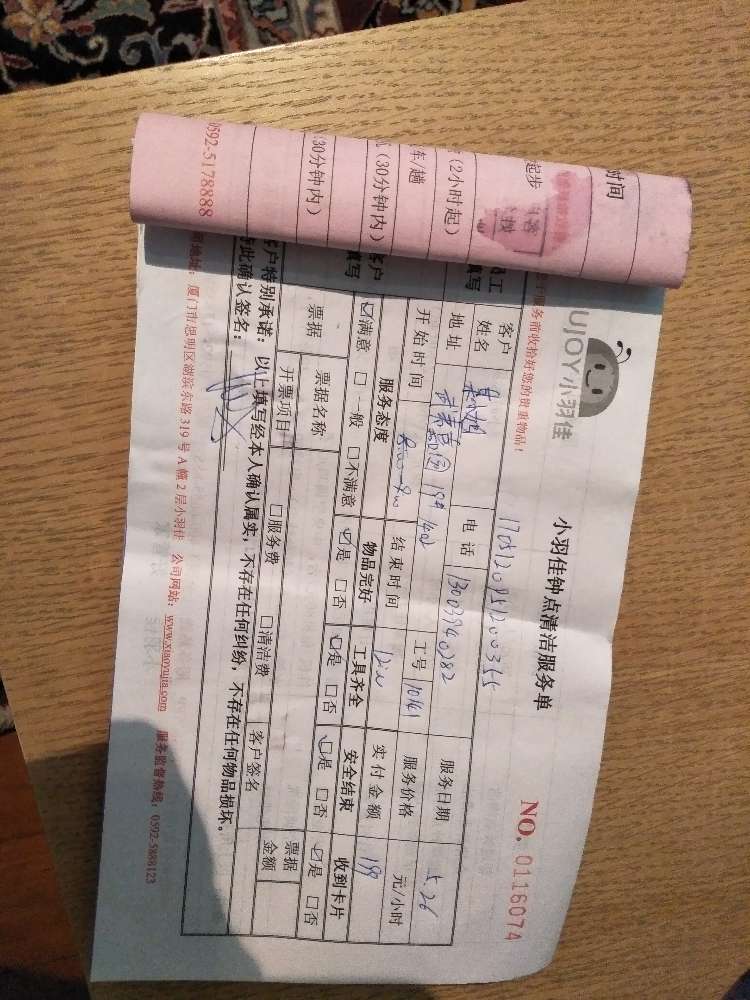 时间
起步
(2小时起)
车/趟
(30分钟内)
(30分钟内)
0592-5178888
UJOY小羽佳
小羽佳钟点清洁服务单
NO. 0116074
服务前收拾好您的贵重物品!
客户姓名
电话
13003940282
服务日期
5.26
地址
19# 1402
工号
服务价格
元/小时
开始时间
结束时间
实付金额
服务态度
物品完好
工具齐全
安全结束
收到卡片
☑满意 □一般 □不满意
☑是 □否
☑是 □否
☑是 □否
☑是 □否
票据
票据名称
□服务费
□清洁费
客户签名
票据金额
开票项目
客户特别承诺:以上填写经本人确认属实,不存在任何纠纷,不存在任何物品损坏。
此确认签名:
地址:厦门市思明区湖滨东路319号A幢2层小羽佳 公司网站:www.xiaoyujia.com 服务监督热线:0592-5888123